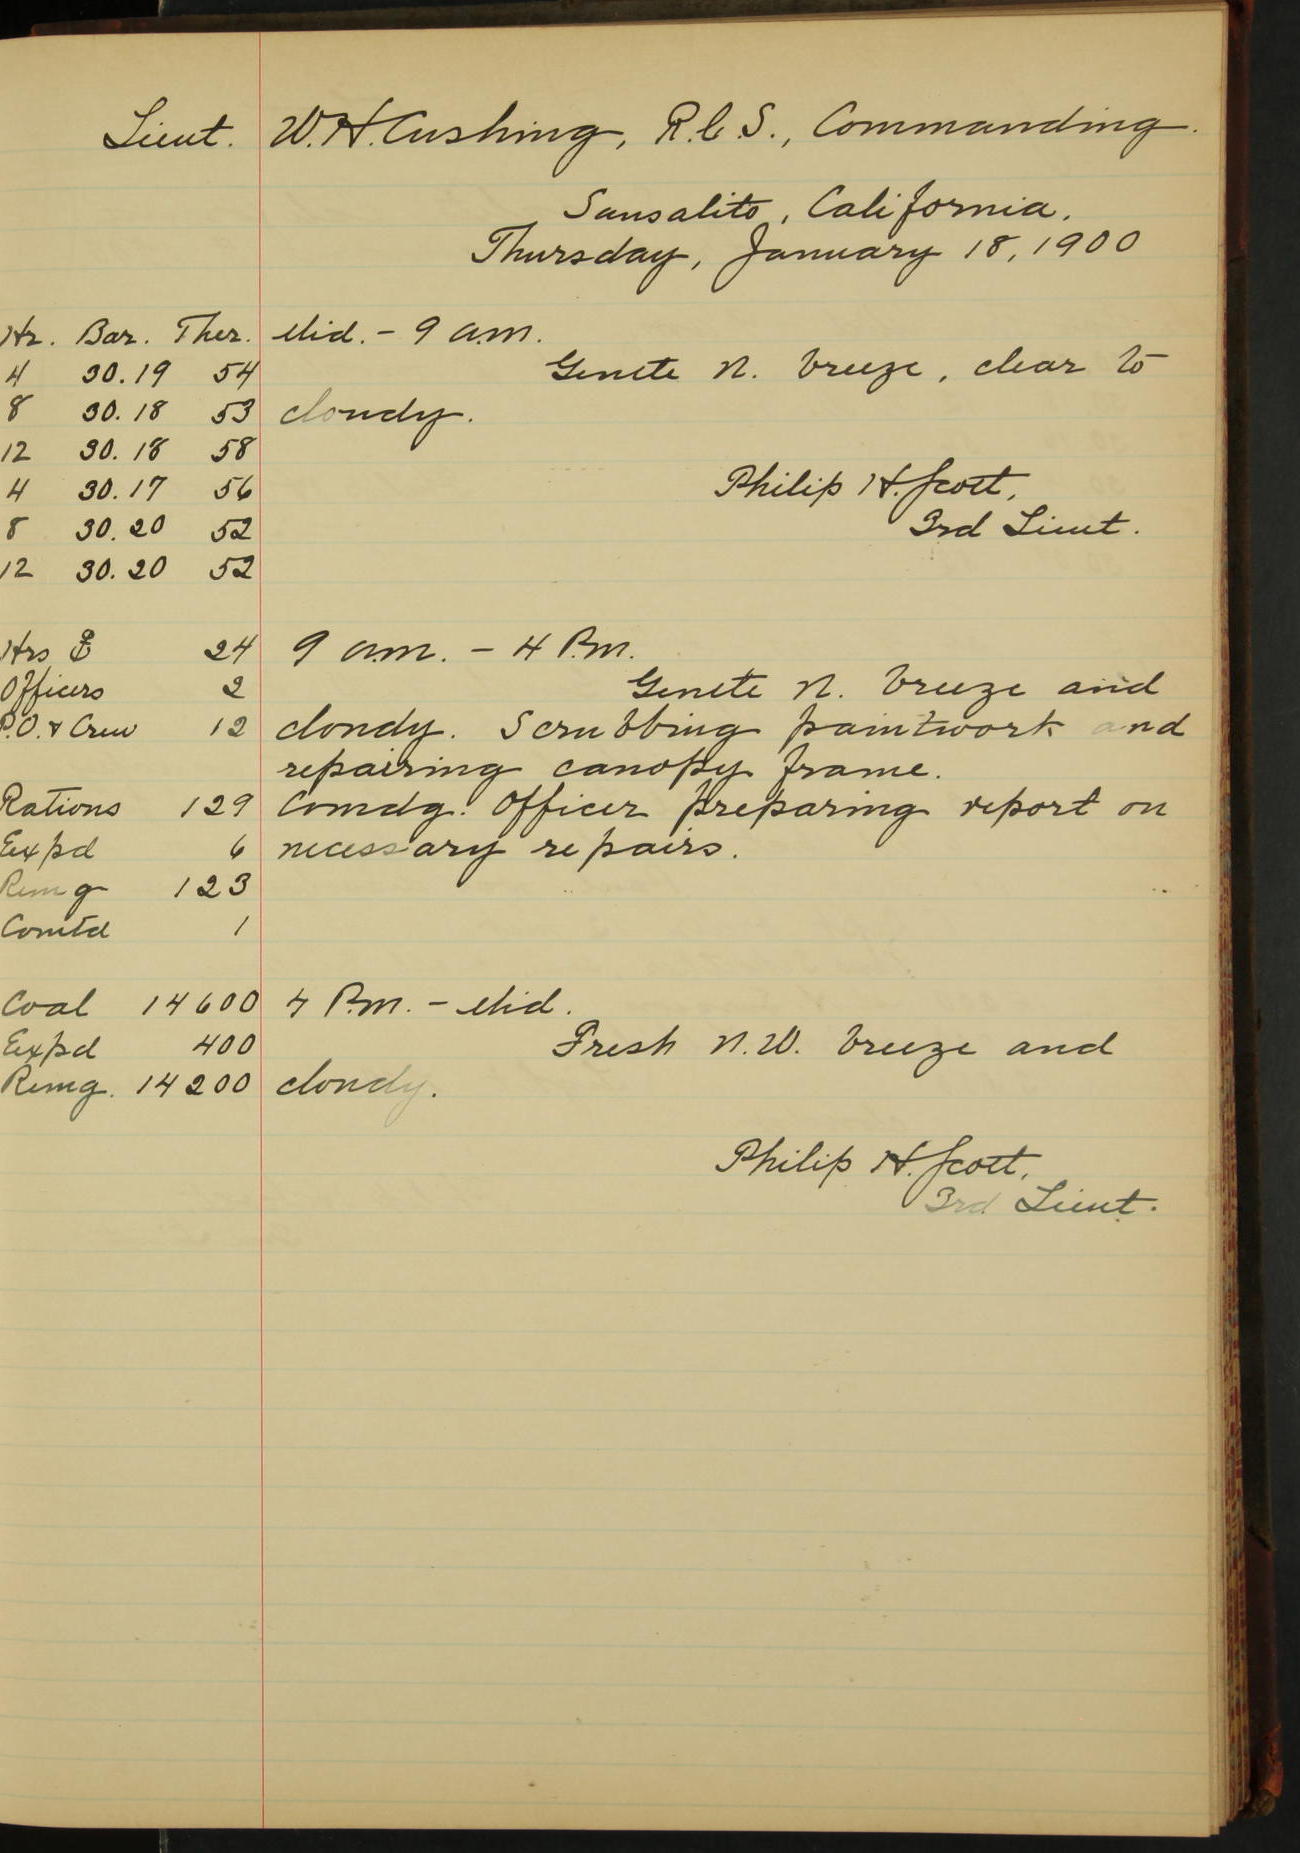 Lieut. W. H. Cushing, R.C.S., Commanding.
Sausalito, California.
Thursday, January 18, 1900
Hr. Bar. Ther. Mid. - 9 a.m.
4 30.19 54 Gentle N. breeze, clear to
8 30.18 53 cloudy.
12 30.18 58
4 30.17 56 Philip H. Scott,
8 30.20 52 3rd Lieut.
12 30.20 52
Hrs ⚓ 24 9 a.m. - 4 P.m.
Officers 2 Gentle N. breeze and
P.O. & Crew 12 cloudy. Scrubbing paintwork and
repairing canopy frame.
Rations 129 Comdg. Officer preparing report on
Expd 6 necessary repairs.
Remg 123
Comtd 1
Coal 14600 4 P.m. - Mid.
Expd 400 Fresh N.W. breeze and
Remg. 14200 cloudy.
Philip H. Scott,
3rd Lieut.